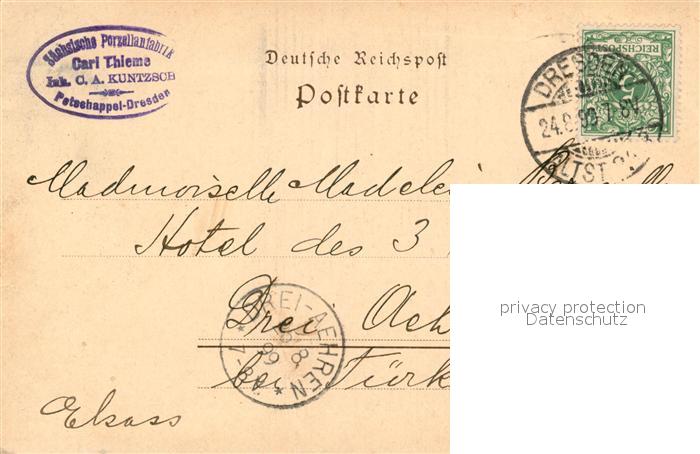 Sächsische Porzellanfabrik
Carl Thieme
Inh. C. A. KUNTZSCH
Potschappel-Dresden
Deutsche Reichspost
Postkarte
REICHSPOST
5
DRESDEN
24.8.99.7-8V
ALTST.
Mademoiselle Madelei
Hotel des 3
Drei Aeh
bei Türk
Elsass
DREI-AEHREN
8
99
privacy protection
Datenschutz